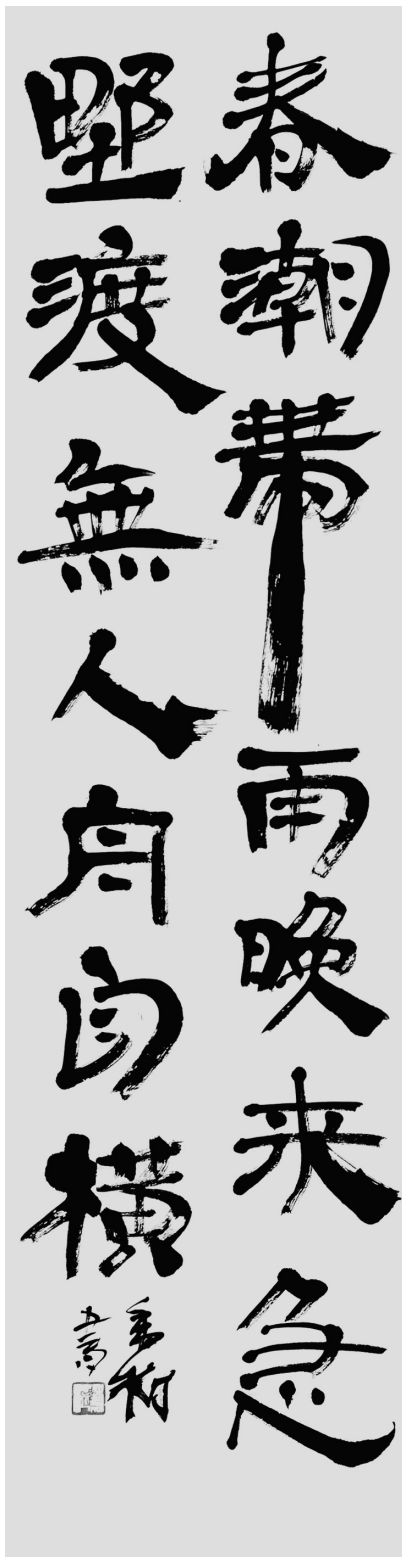 春潮帶雨晚来急
野渡無人舟自横